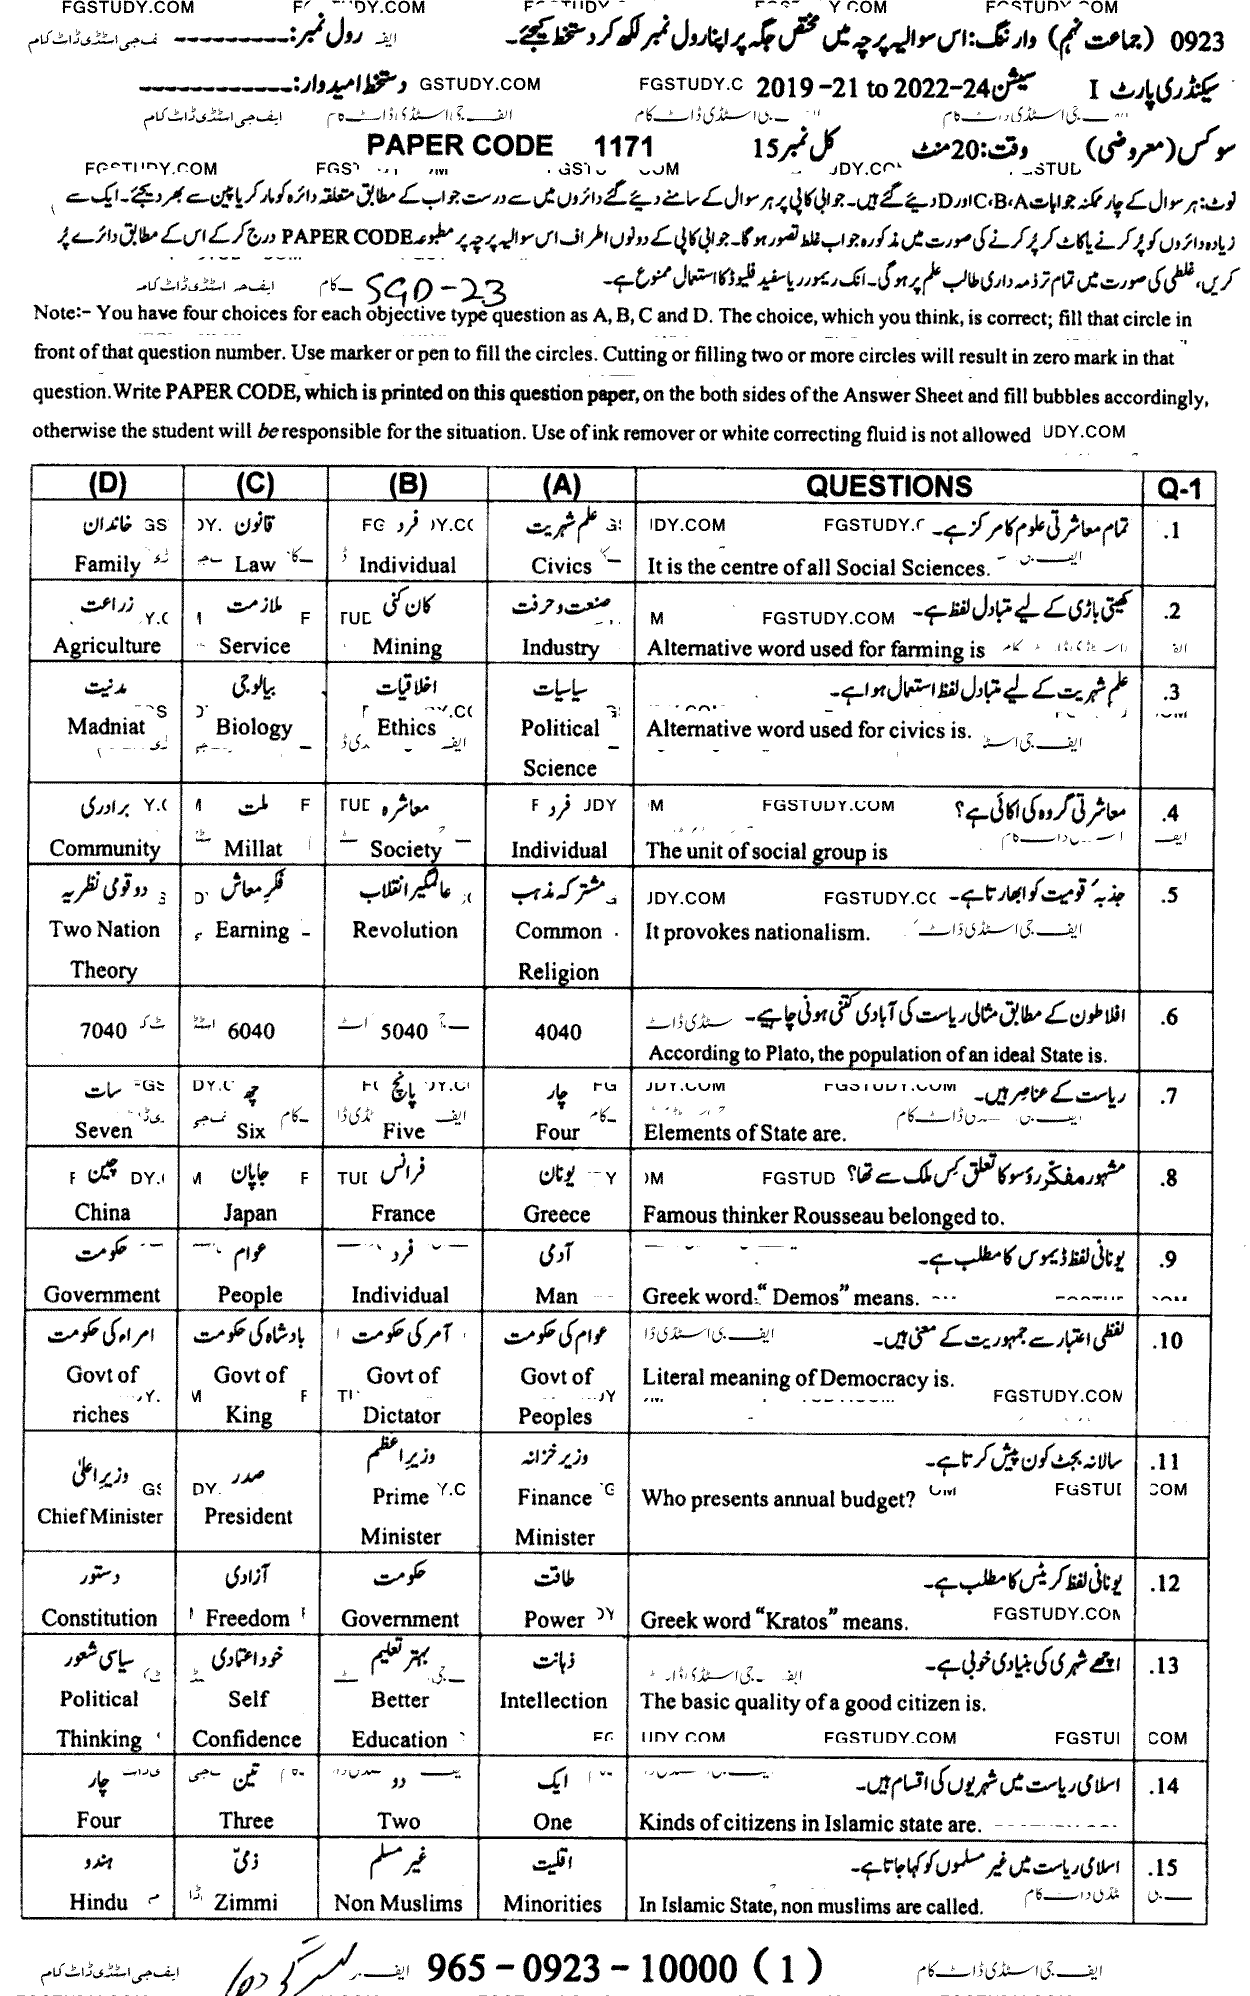 FGSTUDY.COM
0923 (جماعت نہم) وارننگ: اس سوالیہ پرچہ میں مختص جگہ پر اپنا رول نمبر لکھ کر دستخط کیجئے۔ رول نمبر:
سیکنڈری پارٹ I سیشن 2019-21 to 2022-24 دستخط امیدوار:
سوکس (معروضی) وقت: 20 منٹ کل نمبر 15 PAPER CODE 1171
نوٹ: ہر سوال کے چار ممکنہ جوابات A، B، C اور D دیئے گئے ہیں۔ جوابی کاپی پر ہر سوال کے سامنے دیئے گئے دائروں میں سے درست جواب کے مطابق متعلقہ دائرہ کو مارکر یا پین سے بھر دیجئے۔ ایک سے
زیادہ دائروں کو پُر کرنے یا کاٹ کر پُر کرنے کی صورت میں مذکورہ جواب غلط تصور ہو گا۔ جوابی کاپی کے دونوں اطراف اس سوالیہ پرچہ پر مطبوعہ PAPER CODE درج کر کے اس کے مطابق دائرے پُر
کریں، غلطی کی صورت میں تمام تر ذمہ داری طالب علم پر ہوگی۔ انک ریموور یا سفید فلیوڈ کا استعمال ممنوع ہے۔ SGD-23
Note:- You have four choices for each objective type question as A, B, C and D. The choice, which you think, is correct; fill that circle in
front of that question number. Use marker or pen to fill the circles. Cutting or filling two or more circles will result in zero mark in that
question. Write PAPER CODE, which is printed on this question paper, on the both sides of the Answer Sheet and fill bubbles accordingly,
otherwise the student will be responsible for the situation. Use of ink remover or white correcting fluid is not allowed
(D) (C) (B) (A) QUESTIONS Q-1
خاندان قانون فرد علم شہریت تمام معاشرتی علوم کا مرکز ہے۔ .1
Family Law Individual Civics It is the centre of all Social Sciences.
زراعت ملازمت کان کنی صنعت و حرفت کھیتی باڑی کے لیے متبادل لفظ ہے۔ .2
Agriculture Service Mining Industry Alternative word used for farming is
مدنیت بیالوجی اخلاقیات سیاسیات علم شہریت کے لیے متبادل لفظ استعمال ہوا ہے۔ .3
Madniat Biology Ethics Political Alternative word used for civics is.
Science
برادری ملت معاشرہ فرد معاشرتی گروہ کی اکائی ہے؟ .4
Community Millat Society Individual The unit of social group is
دو قومی نظریہ فکرِ معاش عالمگیر انقلاب مشترکہ مذہب جذبہ قومیت کو ابھارتا ہے۔ .5
Two Nation Earning Revolution Common It provokes nationalism.
Theory Religion
افلاطون کے مطابق مثالی ریاست کی آبادی کتنی ہونی چاہیے۔ .6
7040 6040 5040 4040 According to Plato, the population of an ideal State is.
سات چھ پانچ چار ریاست کے عناصر ہیں۔ .7
Seven Six Five Four Elements of State are.
چین جاپان فرانس یونان مشہور مفکر روسو کا تعلق کس ملک سے تھا؟ .8
China Japan France Greece Famous thinker Rousseau belonged to.
حکومت عوام فرد آدمی یونانی لفظ ڈیموس کا مطلب ہے۔ .9
Government People Individual Man Greek word "Demos" means.
امراء کی حکومت بادشاہ کی حکومت آمر کی حکومت عوام کی حکومت لفظی اعتبار سے جمہوریت کے معنی ہیں۔ .10
Govt of Govt of Govt of Govt of Literal meaning of Democracy is.
riches King Dictator Peoples
وزیر اعلیٰ صدر وزیر اعظم وزیر خزانہ سالانہ بجٹ کون پیش کرتا ہے۔ .11
Chief Minister President Prime Minister Finance Minister Who presents annual budget?
دستور آزادی حکومت طاقت یونانی لفظ کریٹس کا مطلب ہے۔ .12
Constitution Freedom Government Power Greek word "Kratos" means.
سیاسی شعور خود اعتمادی بہتر تعلیم ذہانت اچھے شہری کی بنیادی خوبی ہے۔ .13
Political Self Better Intellection The basic quality of a good citizen is.
Thinking Confidence Education
چار تین دو ایک اسلامی ریاست میں شہریوں کی اقسام ہیں۔ .14
Four Three Two One Kinds of citizens in Islamic state are.
ہندو ذمّی غیر مسلم اقلیت اسلامی ریاست میں غیر مسلموں کو کہا جاتا ہے۔ .15
Hindu Zimmi Non Muslims Minorities In Islamic State, non muslims are called.
965 - 0923 - 10000 ( 1 )
ایف جی اسٹڈی ڈاٹ کام